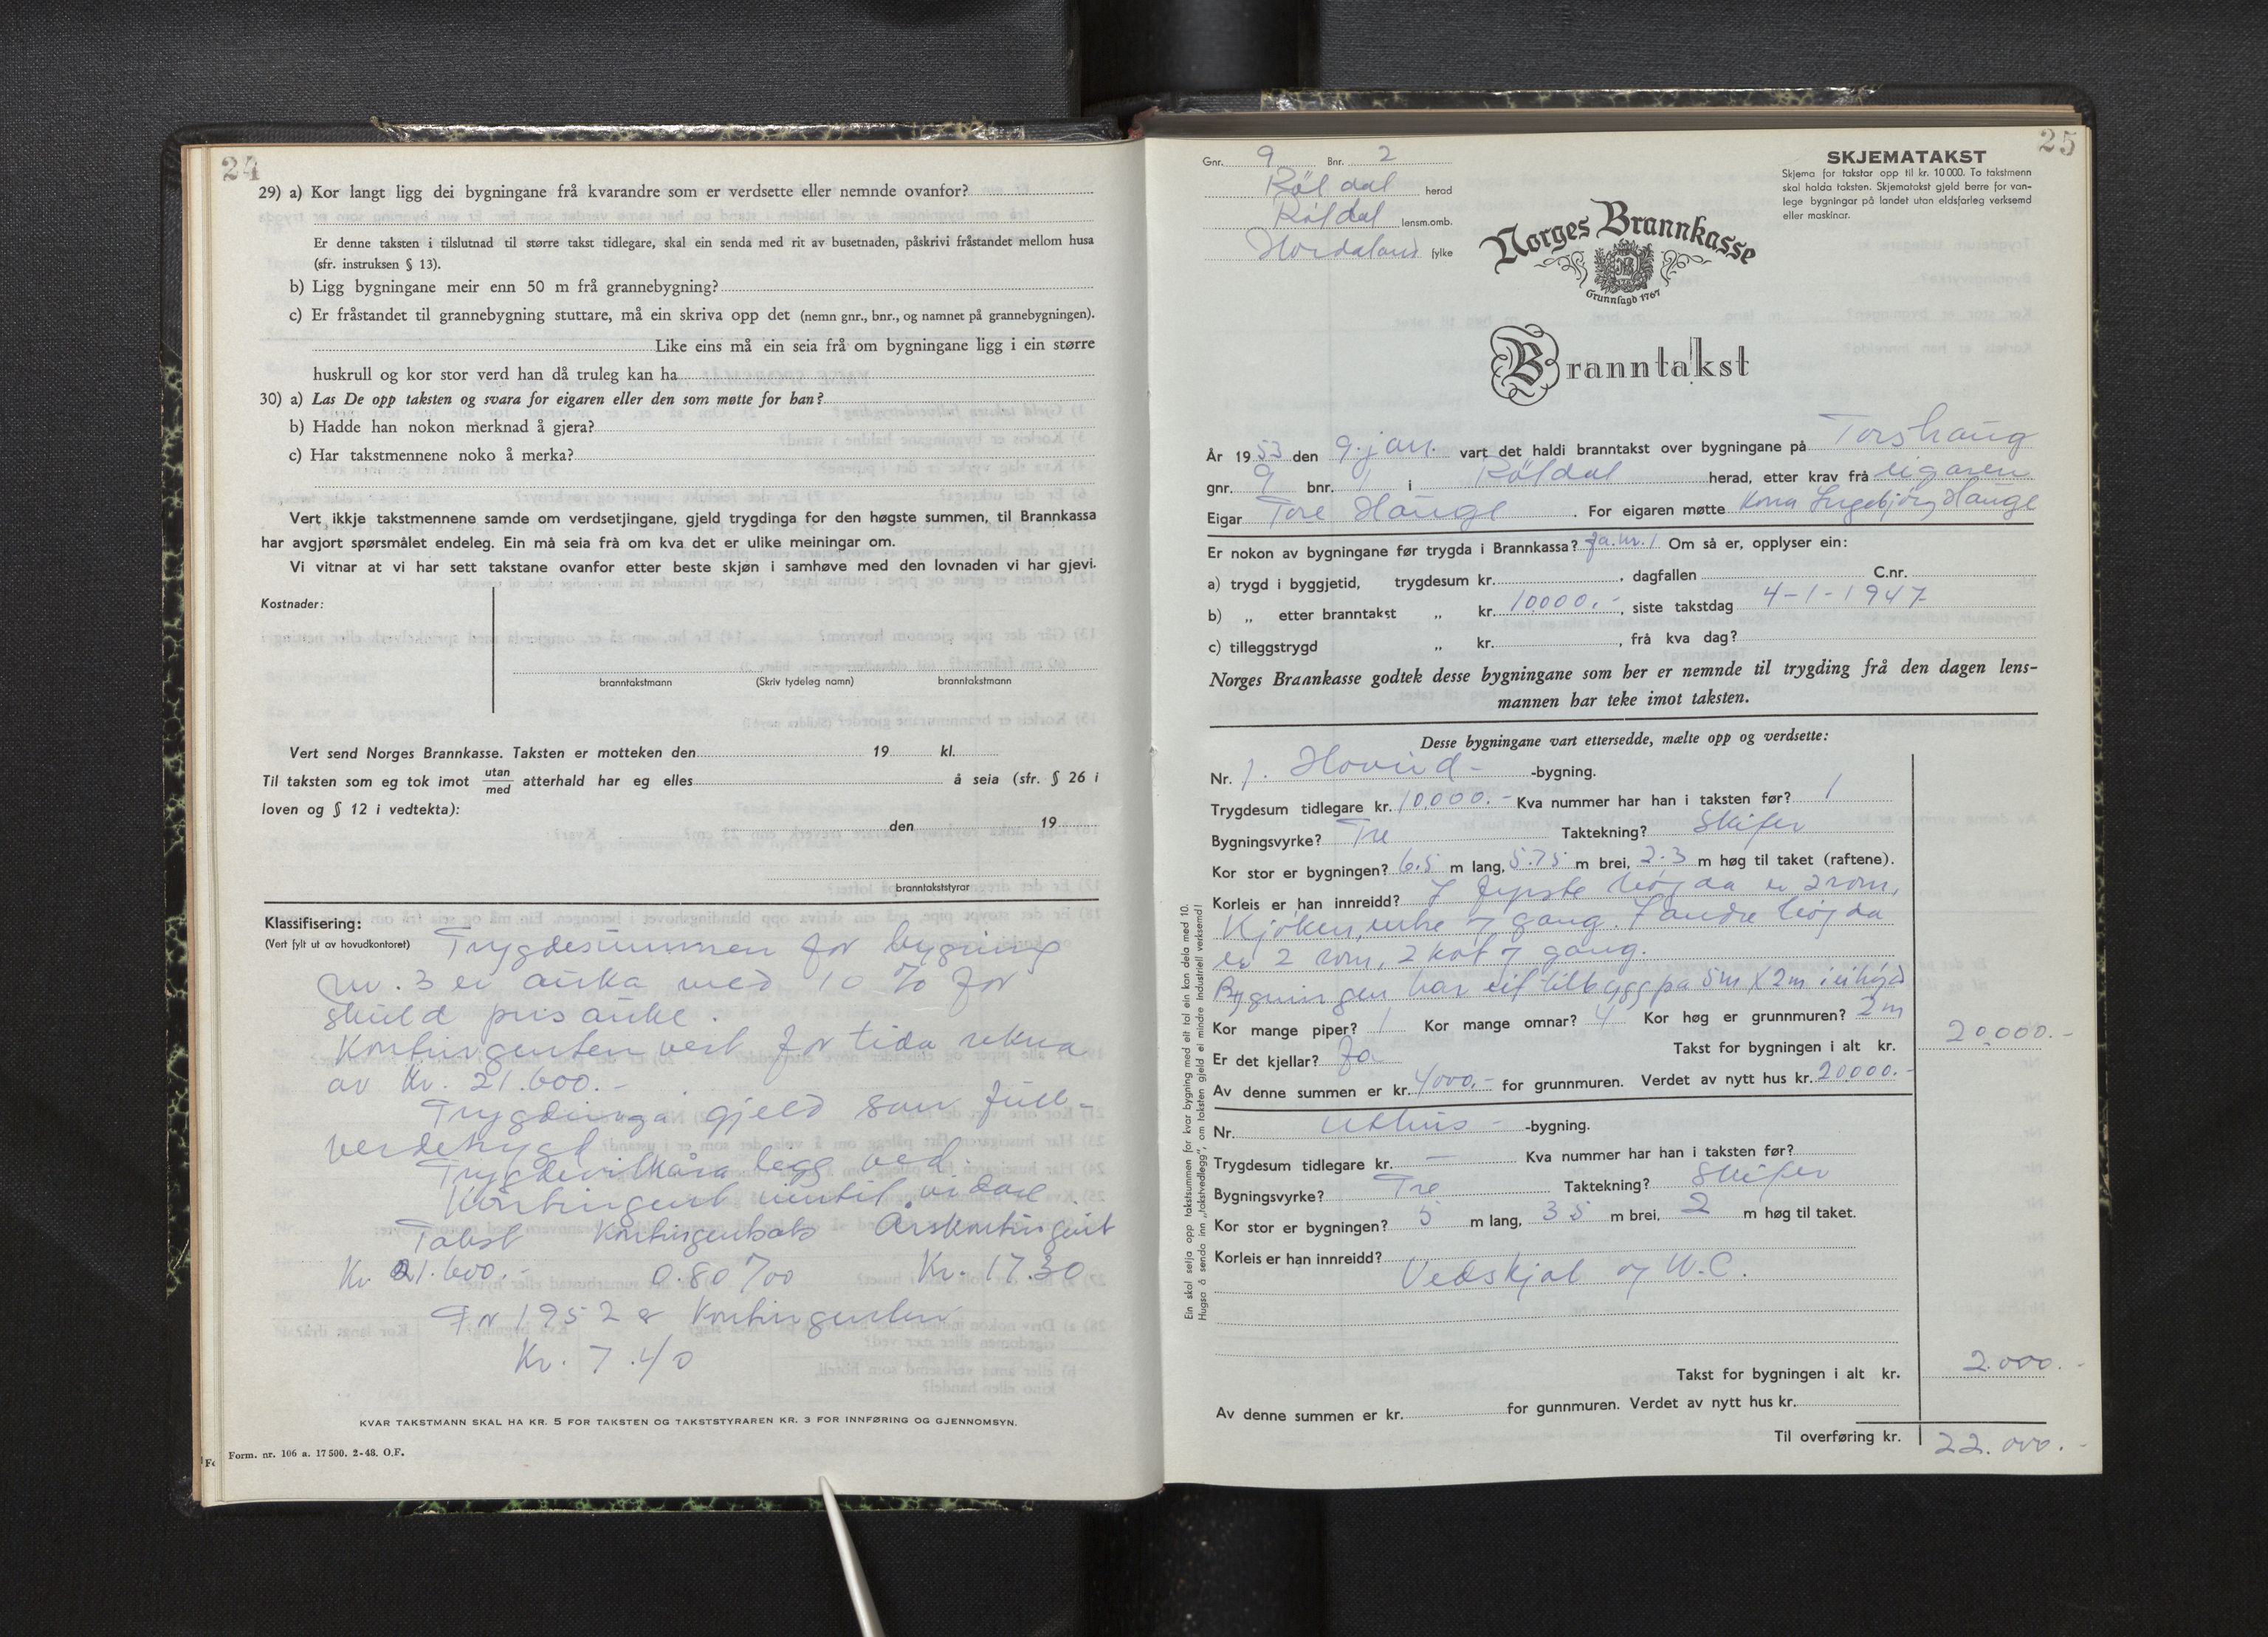 24
29) a) Kor langt ligg dei bygningane frå kvarandre som er verdsette eller nemnde ovanfor?
Er denne taksten i tilslutnad til større takst tidlegare, skal ein senda med rit av busetnaden, påskrivi fråstandet mellom husa
(sfr. instruksen § 13).
b) Ligg bygningane meir enn 50 m frå grannebygning?
c) Er fråstandet til grannebygning stuttare, må ein skriva opp det (nemn gnr., bnr., og namnet på grannebygningen).
Like eins må ein seia frå om bygningane ligg i ein større
huskrull og kor stor verd han då truleg kan ha
30) a) Las De opp taksten og svara for eigaren eller den som møtte for han?
b) Hadde han nokon merknad å gjera?
c) Har takstmennene noko å merka?
Vert ikkje takstmennene samde om verdsetjingane, gjeld trygdinga for den høgste summen, til Brannkassa
har avgjort spørsmålet endeleg. Ein må seia frå om kva det er ulike meiningar om.
Vi vitnar at vi har sett takstane ovanfor etter beste skjøn i samhøve med den lovnaden vi har gjevi.
Kostnader:
branntakstmann (Skriv tydeleg namn) branntakstmann
Vert send Norges Brannkasse. Taksten er motteken den 19 kl.
Til taksten som eg tok imot utan/med atterhald har eg elles å seia (sfr. § 26 i
loven og § 12 i vedtekta):
den 19
branntakststyrar
Klassifisering:
(Vert fylt ut av hovudkontoret)
Trygdesummen for bygning
nr. 3 er auka med 10 % for
skuld prisauke.
Kontingenten vert for tida rekna
av kr. 21.600.-
Trygdinga gjeld som full-
verdetrygd
Trygdevilkåra ligg ved.
Kontingent inntil vidare.
Takst Kontingentsats Årskontingent
Kr. 21.600.- 0.80 ‰ Kr. 17.30
For 1952 er kontingenten
Kr. 7.40
KVAR TAKSTMANN SKAL HA KR. 5 FOR TAKSTEN OG TAKSTSTYRAREN KR. 3 FOR INNFØRING OG GJENNOMSYN.
Form. nr. 106 a. 17 500. 2-48. O.F.
25
Gnr. 9 Bnr. 2
Röldal herad
Röldal lensm.omb.
Hordaland fylke
SKJEMATAKST
Skjema for takstar opp til kr. 10 000. To takstmenn
skal halda taksten. Skjematakst gjeld berre for van-
lege bygningar på landet utan eldsfarleg verksemd
eller maskinar.
Norges Brannkasse
Grunnlagd 1767
Branntakst
År 1953 den 9. jan. vart det haldi branntakst over bygningane på Torshaug
gnr. 9 bnr. 1 i Röldal herad, etter krav frå eigaren
Eigar Tore Hauge. For eigaren møtte Kona Ingebjørg Hauge
Er nokon av bygningane før trygda i Brannkassa? Ja. nr. 1 Om så er, opplyser ein:
a) trygd i byggjetid, trygdesum kr. , dagfallen C.nr.
b) „ etter branntakst „ kr. 10000.-, siste takstdag 4-1-1947
c) tilleggstrygd „ kr. , frå kva dag?
Norges Brannkasse godtek desse bygningane som her er nemnde til trygding frå den dagen lens-
mannen har teke imot taksten.
Desse bygningane vart ettersedde, mælte opp og verdsette:
Nr. 1. Hovud- -bygning.
Trygdesum tidlegare kr. 10.000.- Kva nummer har han i taksten før? 1
Bygningsvyrke? Tre Taktekning? Skifer
Kor stor er bygningen? 6.5 m lang, 5.75 m brei, 2.3 m høg til taket (raftene).
Korleis er han innreidd? I fyrste høgda er 2 rom,
Kjøken, entre og gang. I andre høgda
er 2 rom, 2 kot og gang.
Bygningen har eit tilbygg på 5m x 2m i ei høgd
Kor mange piper? 1 Kor mange omnar? 4 Kor høg er grunnmuren? 2 m
Er det kjellar? Ja. Takst for bygningen i alt kr. 20.000.-
Av denne summen er kr. 4000.- for grunnmuren. Verdet av nytt hus kr. 20.000.-
Nr. Uthus- -bygning.
Trygdesum tidlegare kr. — Kva nummer har han i taksten før?
Bygningsvyrke? Tre Taktekning? Skifer
Kor stor er bygningen? 5 m lang, 3.5 m brei, 2 m høg til taket.
Korleis er han innreidd? Vedskjol og W.C.
Takst for bygningen i alt kr. 2.000.-
Av denne summen er kr. for gunnmuren. Verdet av nytt hus kr.
Til overføring kr. 22.000.-
Ein skal setja opp takstsummen for kvar bygning med eit tal ein kan dela med 10.
Hugsa å senda inn „takstvedlegg”, om taksten gjeld ei mindre industriell verksemd!